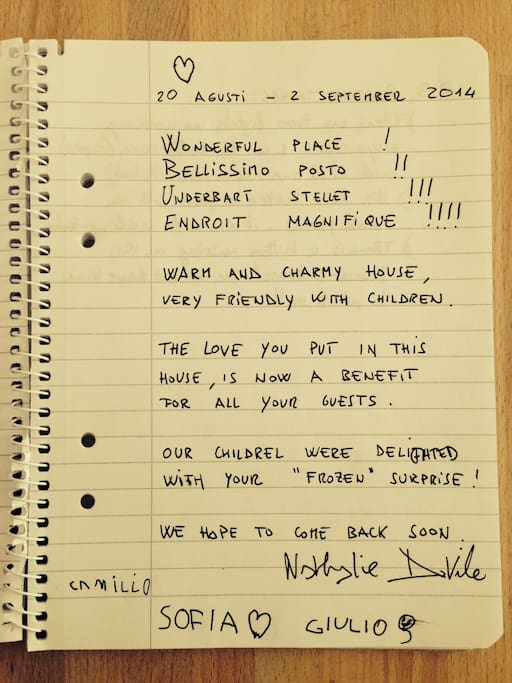 20 AGUSTI - 2 SEPTEMBER 2014
WONDERFUL PLACE !
BELLISSIMO POSTO !!
UNDERBART STELLET !!!
ENDROIT MAGNIFIQUE !!!!
WARM AND CHARMY HOUSE,
VERY FRIENDLY WITH CHILDREN.
THE LOVE YOU PUT IN THIS
HOUSE, IS NOW A BENEFIT
FOR ALL YOUR GUESTS.
OUR CHILDREL WERE DELIGHTED
WITH YOUR "FROZEN" SURPRISE!
WE HOPE TO COME BACK SOON.
Nathalie
CAMILLO
SOFIA GIULIO